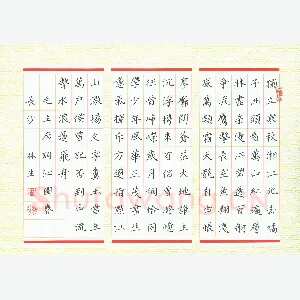 獨立寒秋湘江北去橘
子洲頭看萬山紅遍層
林盡染漫江碧透百舸
爭流鷹擊長空魚翔淺
底萬類霜天競自由悵
寥廓問蒼茫大地誰主
沉浮攜來百侶曾遊憶
往昔崢嶸歲月稠恰同
學少年風華正茂書生
意氣揮斥方遒指點江
山激揚文字糞土當年
萬户侯曾記否到中流
擊水浪遏飛舟
毛主席詞沁園春
長沙 林生